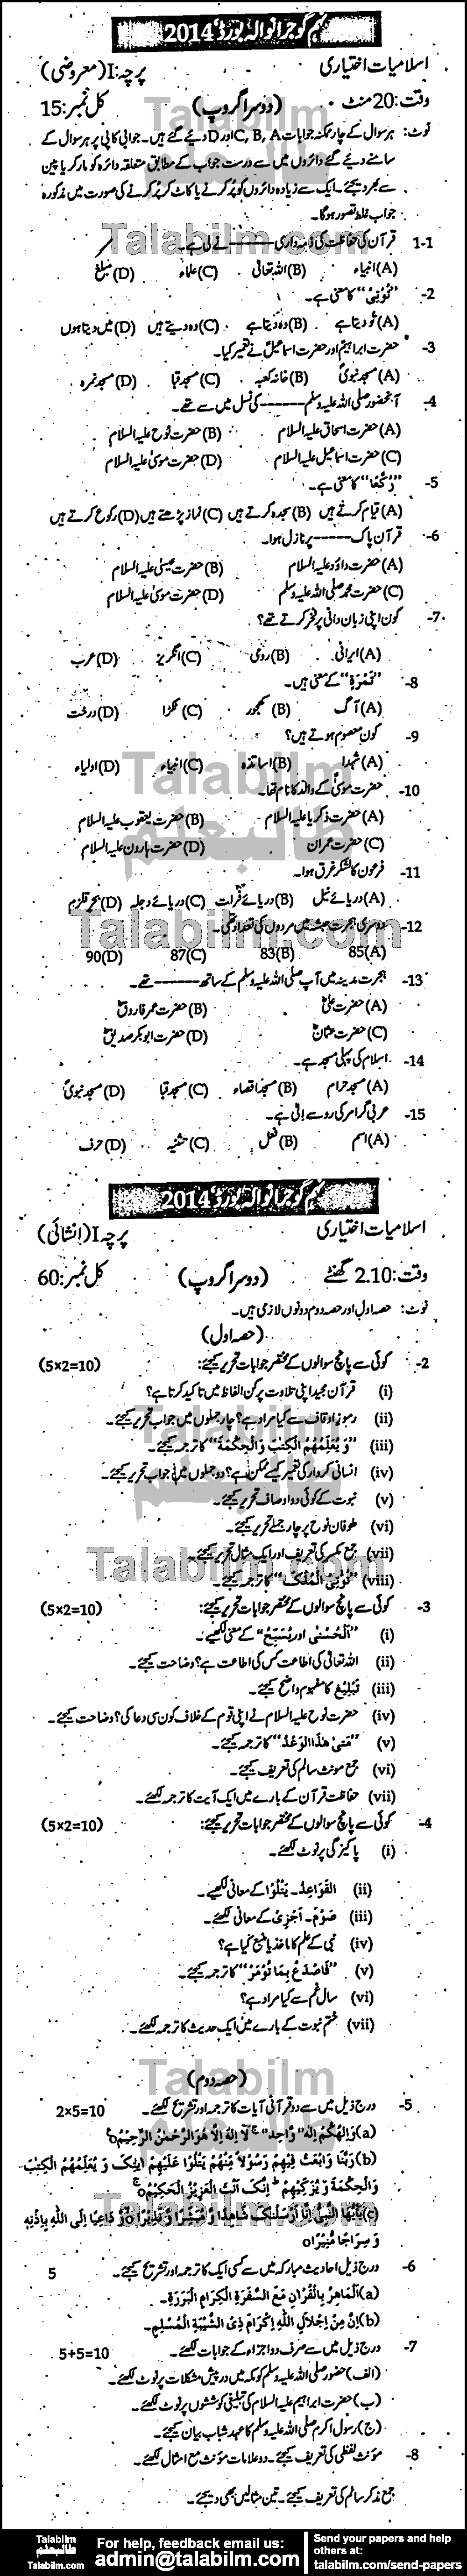 کم گوجرانوالہ بورڈ‘ 2014
اسلامیات اختیاری پرچہ:I(معروضی)
وقت:20منٹ (دوسراگروپ) کل نمبر:15
نوٹ: ہرسوال کے چار ممکنہ جوابات C, B, A اور D دیے گئے ہیں۔ جوابی کاپی پر ہرسوال کے
سامنے دیے گئے دائروں میں سے درست جواب کے مطابق متعلقہ دائرہ کو مارکر یا پین
سے بھر دیجئے۔ ایک سے زیادہ دائروں کو پُر کرنے یا کاٹ کر پُر کرنے کی صورت میں مذکورہ
جواب غلط تصور ہوگا۔
1-1 قرآن کی حفاظت کی ذمہ داری ------ نے لی ہے۔
(A) انبیاء (B) اللہ تعالٰی (C) علماء (D) مبلغ
-2 ”تُؤْتِیْ“ کا معنی ہے۔
(A) تُو دیتا ہے (B) وہ دیتا ہے (C) وہ دیتے ہیں (D) میں دیتا ہوں
-3 حضرت ابراہیمؑ اور حضرت اسماعیلؑ نے تعمیر کیا۔
(A) مسجد نبویؐ (B) خانہ کعبہ (C) مسجد قبا (D) مسجد نمرہ
-4 آنحضور صلی اللہ علیہ وسلم ------ کی نسل میں سے تھے۔
(A) حضرت اسحاق علیہ السلام (B) حضرت نوح علیہ السلام
(C) حضرت اسماعیل علیہ السلام (D) حضرت موسیٰ علیہ السلام
-5 ”رُکَّعًا“ کا معنی ہے۔
(A) قیام کرتے ہیں (B) سجدہ کرتے ہیں (C) نماز پڑھتے ہیں (D) رکوع کرتے ہیں
-6 قرآن پاک ----- پر نازل ہوا۔
(A) حضرت داؤد علیہ السلام (B) حضرت عیسیٰ علیہ السلام
(C) حضرت محمد صلی اللہ علیہ وسلم (D) حضرت موسیٰ علیہ السلام
-7 کون اپنی زبان دانی پر فخر کرتے تھے؟
(A) ایرانی (B) رومی (C) انگریز (D) عرب
-8 ”تَمْرَۃٍ“ کے معنی ہیں۔
(A) آگ (B) کھجور (C) ٹکڑا (D) درخت
-9 کون معصوم ہوتے ہیں؟
(A) شہدا (B) اساتذہ (C) انبیاء (D) اولیاء
-10 حضرت موسیٰؑ کے والد کا نام تھا۔
(A) حضرت ذکریا علیہ السلام (B) حضرت یعقوب علیہ السلام
(C) حضرت عمران (D) حضرت ہارون علیہ السلام
-11 فرعون کا لشکر غرق ہوا۔
(A) دریائے نیل (B) دریائے فرات (C) دریائے دجلہ (D) بحر قلزم
-12 دوسری ہجرت حبشہ میں مردوں کی تعداد تھی۔
85(A) 83(B) 87(C) 90(D)
-13 ہجرت مدینہ میں آپ صلی اللہ علیہ وسلم کے ساتھ ------ تھے۔
(A) حضرت علیؓ (B) حضرت عمر فاروقؓ
(C) حضرت عثمانؓ (D) حضرت ابوبکر صدیقؓ
-14 اسلام کی پہلی مسجد ہے۔
(A) مسجد حرام (B) مسجد اقصاء (C) مسجد قبا (D) مسجد نبویؐ
-15 عربی گرامر کی رو سے اِنّی ہے۔
(A) اسم (B) فعل (C) تثنیہ (D) حرف
کم گوجرانوالہ بورڈ‘ 2014
اسلامیات اختیاری پرچہ I(انشائی)
وقت:2.10 گھنٹے (دوسراگروپ) کل نمبر:60
نوٹ: حصہ اول اور حصہ دوم دونوں لازمی ہیں۔
(حصہ اول)
-2 کوئی سے پانچ سوالوں کے مختصر جوابات تحریر کیجئے: (5×2=10)
(i) قرآن مجید اپنی تلاوت پر کن الفاظ میں تاکید کرتا ہے؟
(ii) رموز اوقاف سے کیا مراد ہے؟ چار جملوں میں جواب تحریر کیجئے۔
(iii) ”وَ یُعَلِّمُھُمُ الْکِتٰبَ وَالْحِکْمَۃَ“ کا ترجمہ کیجئے۔
(iv) انسانی کردار کی تعمیر کیسے ممکن ہے؟ دو جملوں میں جواب تحریر کیجئے۔
(v) نبوت کے کوئی دو اوصاف تحریر کیجئے۔
(vi) طوفان نوح پر چار جملے تحریر کیجئے۔
(vii) جمع مکسر کی تعریف اور ایک مثال تحریر کیجئے۔
(viii) ”تُؤْتِی الْمُلْکَ“ کا ترجمہ کیجئے۔
-3 کوئی سے پانچ سوالوں کے مختصر جوابات تحریر کیجئے: (5×2=10)
(i) ”اَلْحُسْنٰی اور یُسَبِّحُ“ کے معنی لکھیے۔
(ii) اللہ تعالٰی کی اطاعت کس کی اطاعت ہے؟ وضاحت کیجئے۔
(iii) تَبلیغ کا مفہوم واضح کیجئے۔
(iv) حضرت نوح علیہ السلام نے اپنی قوم کے خلاف کون سی دعا کی؟ وضاحت کیجئے۔
(v) ”مَتٰی ھٰذَا الْوَعْدُ“ کا ترجمہ کیجئے۔
(vi) جمع مونث سالم کی تعریف کیجئے۔
(vii) حفاظت قرآن کے بارے میں ایک آیت کا ترجمہ لکھئے۔
-4 کوئی سے پانچ سوالوں کے مختصر جوابات تحریر کیجئے: (5×2=10)
(i) پاکیزگی پر نوٹ لکھئے۔
(ii) القَوَاعِدُ۔ یَتْلُوْا کے معانی لکھیے۔
(iii) صَوْمُ۔ اَجْزِیْ کے معانی لکھئے۔
(iv) نبی کے علم کا ماخذ یا منبع کیا ہے؟
(v) ”فَاصْدَعْ بِمَا تُؤْمَرُ“ کا ترجمہ کیجئے۔
(vi) سال غم سے کیا مراد ہے؟
(vii) ختم نبوت کے بارے میں ایک حدیث کا ترجمہ لکھئے۔
(حصہ دوم)
-5 درج ذیل میں سے دو قرآنی آیات کا ترجمہ اور تشریح لکھئے۔ 2×5=10
(a) وَاِلٰھُکُمْ اِلٰہٌ وَّاحِدٌ ج لَا اِلٰہَ اِلَّا ھُوَ الرَّحْمٰنُ الرَّحِیْمُ o
(b) رَبَّنَا وَابْعَثْ فِیْھِمْ رَسُوْلًا مِّنْھُمْ یَتْلُوْا عَلَیْھِمْ اٰیٰتِکَ وَ یُعَلِّمُھُمُ الْکِتٰبَ
وَالْحِکْمَۃَ وَ یُزَکِّیْھِمْ ط اِنَّکَ اَنْتَ الْعَزِیْزُ الْحَکِیْمُ o
(c) یٰٓاَیُّھَا النَّبِیُّ اِنَّا اَرْسَلْنٰکَ شَاھِدًا وَّ مُبَشِّرًا وَّ نَذِیْرًا o وَّ دَاعِیًا اِلَی اللّٰہِ بِاِذْنِہٖ
وَ سِرَاجًا مُّنِیْرًا o
-6 درج ذیل احادیث مبارکہ میں سے کسی ایک کا ترجمہ اور تشریح کیجئے۔ 5
(a) اَلْمَاھِرُ بِالْقُرْاٰنِ مَعَ السَّفَرَۃِ الْکِرَامِ الْبَرَرَۃِ۔
(b) اِنَّ مِنْ اِجْلَالِ اللّٰہِ اِکْرَامَ ذِی الشَّیْبَۃِ الْمُسْلِمِ۔
-7 درج ذیل میں سے صرف دو اجزاء کے جوابات لکھئے۔ 5+5=10
(الف) حضور صلی اللہ علیہ وسلم کو مکہ میں درپیش مشکلات پر نوٹ لکھئے۔
(ب) حضرت ابراہیم علیہ السلام کی تبلیغی کوششوں پر نوٹ لکھئے۔
(ج) رسول اکرم صلی اللہ علیہ وسلم کا عہد شباب بیان کیجئے۔
-8 مؤنث لفظی کی تعریف کیجئے۔ دو علامات مؤنث مع امثال لکھئے۔
جمع مذکر سالم کی تعریف کیجئے۔ تین مثالیں بھی دیجئے۔
Talabilm
طالبعلم
Talabilm.com
For help, feedback email us:
admin@talabilm.com
Send your papers and help
others at:
talabilm.com/send-papers